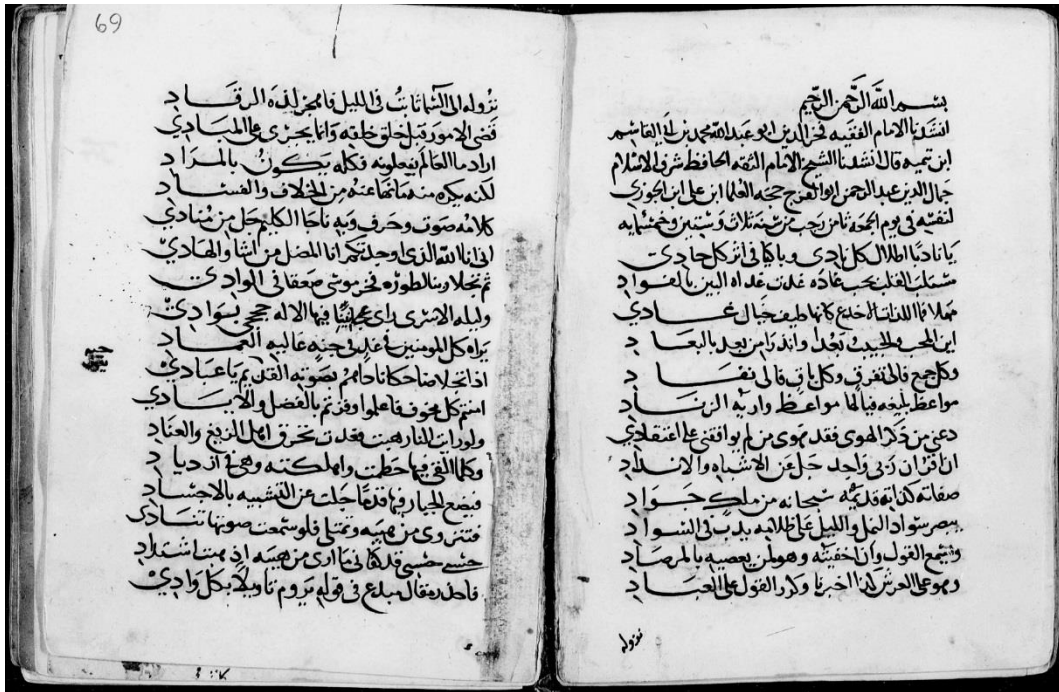 بسم الله الرحمن الرحيم
انشدنا الامام الفقيه فخر الدين ابو عبد الله محمد بن ابي القاسم
ابن تيميه قال انشدنا الشيخ الامام الثقه الحافظ شرف الاسلام
جمال الدين عبد الرحمن ابو الفرج حجه العلما ابن علي ابن الجوزي
لنفسه في يوم الجمعه ثامن رجب من سنة ثلاث وستين وخمسمايه
يا نادبا اطلال كل نادي وباكيا في اثر كل حادي
مستلب القلب بحب غاده غدت غداه البين بالفواد
مهلا فما اللذات الا خدع كانها طيف خيال غادي
اين المحب والحبيب بعدا وانذرا من بعد بالبعاد
وكل جمع فالى تفرق وكل باق فالى نفاد
مواعظ بليغه فيا لها مواعظ وارية الزناد
دعني من ذكر الهوى فقد هوى من لم يوافقني على اعتقادي
ان اقران ربي واحد جل عن الاشباه والانداد
صفاته كذاته قديمه سبحانه من ملك جواد
يبصر سواد النمل والليل على ظلامه يدب في السواد
ويسمع القول وان اخفيته وهو لمن يعصيه بالمرصاد
وهو على العرش كذا اخبرنا وكرر القول على العباد
نزوله
69
نزوله الى السما ثابت في الليل فاهجر لذة الرقاد
قضى الامور قبل خلق خلقه وانما يجرى على المبادي
اراد ما العالم يفعلونه فكله يكون بالمراد
لكنه يكره منه ما نها عنه من الخلاف والفساد
كلامه صوت وحرف وبه ناجا الكليم جل من منادي
اني انا الله الذي اوجدتكم انا المضل من اشا والهادي
ثم تجلا ربنا لطوره فخر موسى صعقا في الوادي
وليله الاسرى راى محمد فيها الاله
يراه كل المومنين في غد في جنه عاليه العماد
اذا تجلا ضاحكا ناداهم بصوته القديم يا عبادي
امنتم كل مخوف فاعلموا وفزتم بالفضل والايادي
ولو رايت النار هبت فغدت تحرق اهل الزيغ والعناد
وكلما القي فيها حطمت واهلكته وهي في ازدياد
فيضع الجبار فيها قدما جلت عن التشبيه بالاجساد
فتنزوي من هيبه وتمتلي فلو سمعت صوتها تنادي
حسبي حسبي قد كفاني ما ارى من هيبه اذهبت اشتداد
فاحذر مقال مبدع في قوله يروم تاويلا بكل وادي